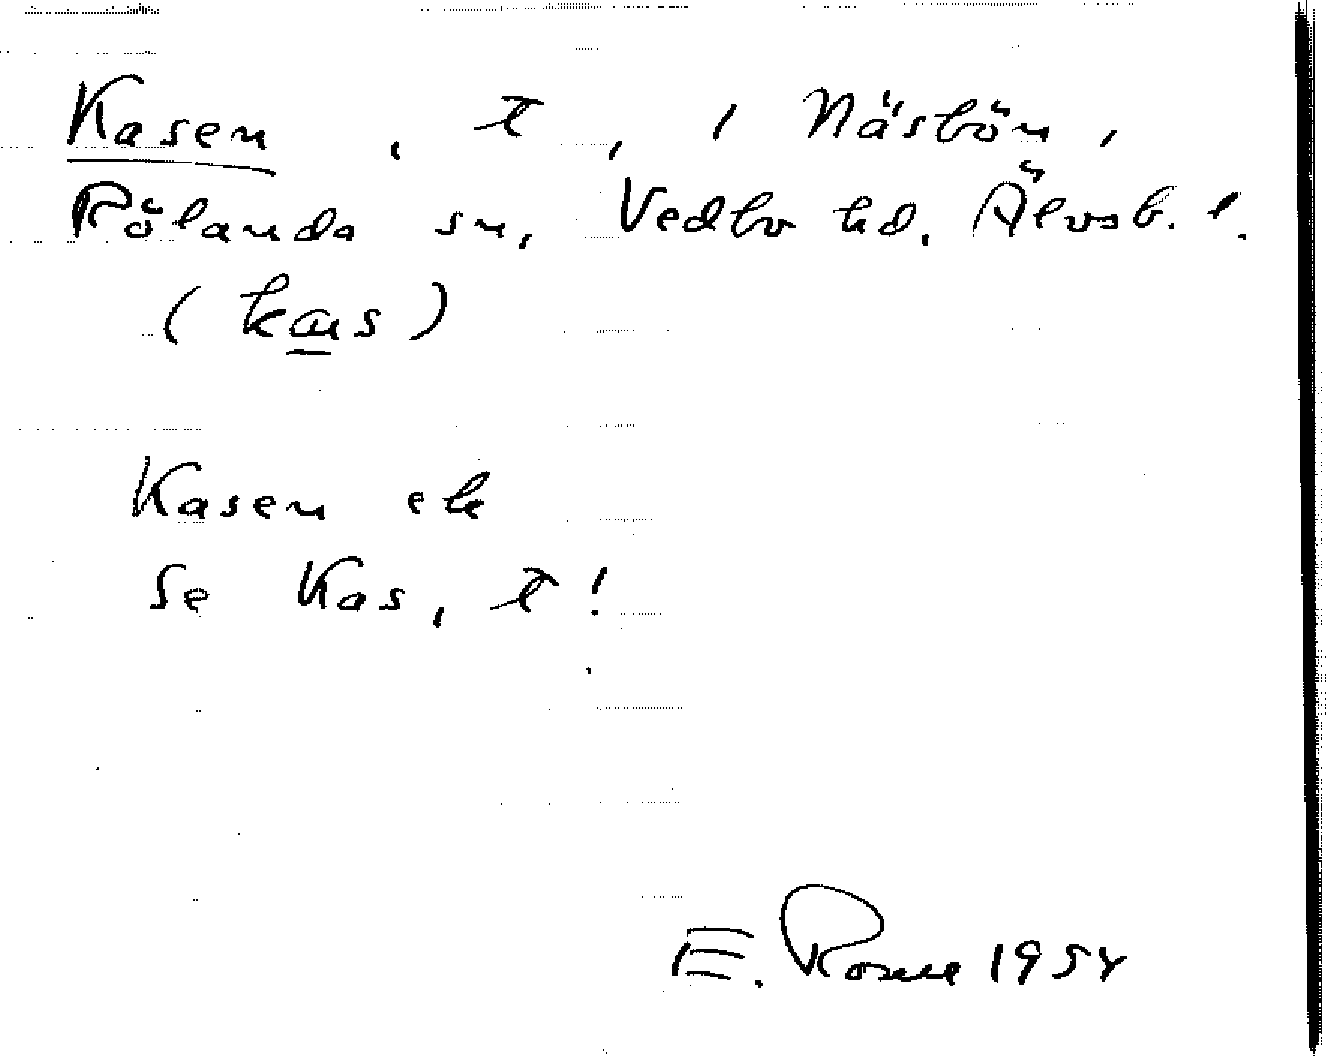 Kasen, t, i Näsbön,
Rölanda sn, Vedbo hd. Älvsb. l.
(kas)
Kasen ek
Se Kas, t!
E. 1954